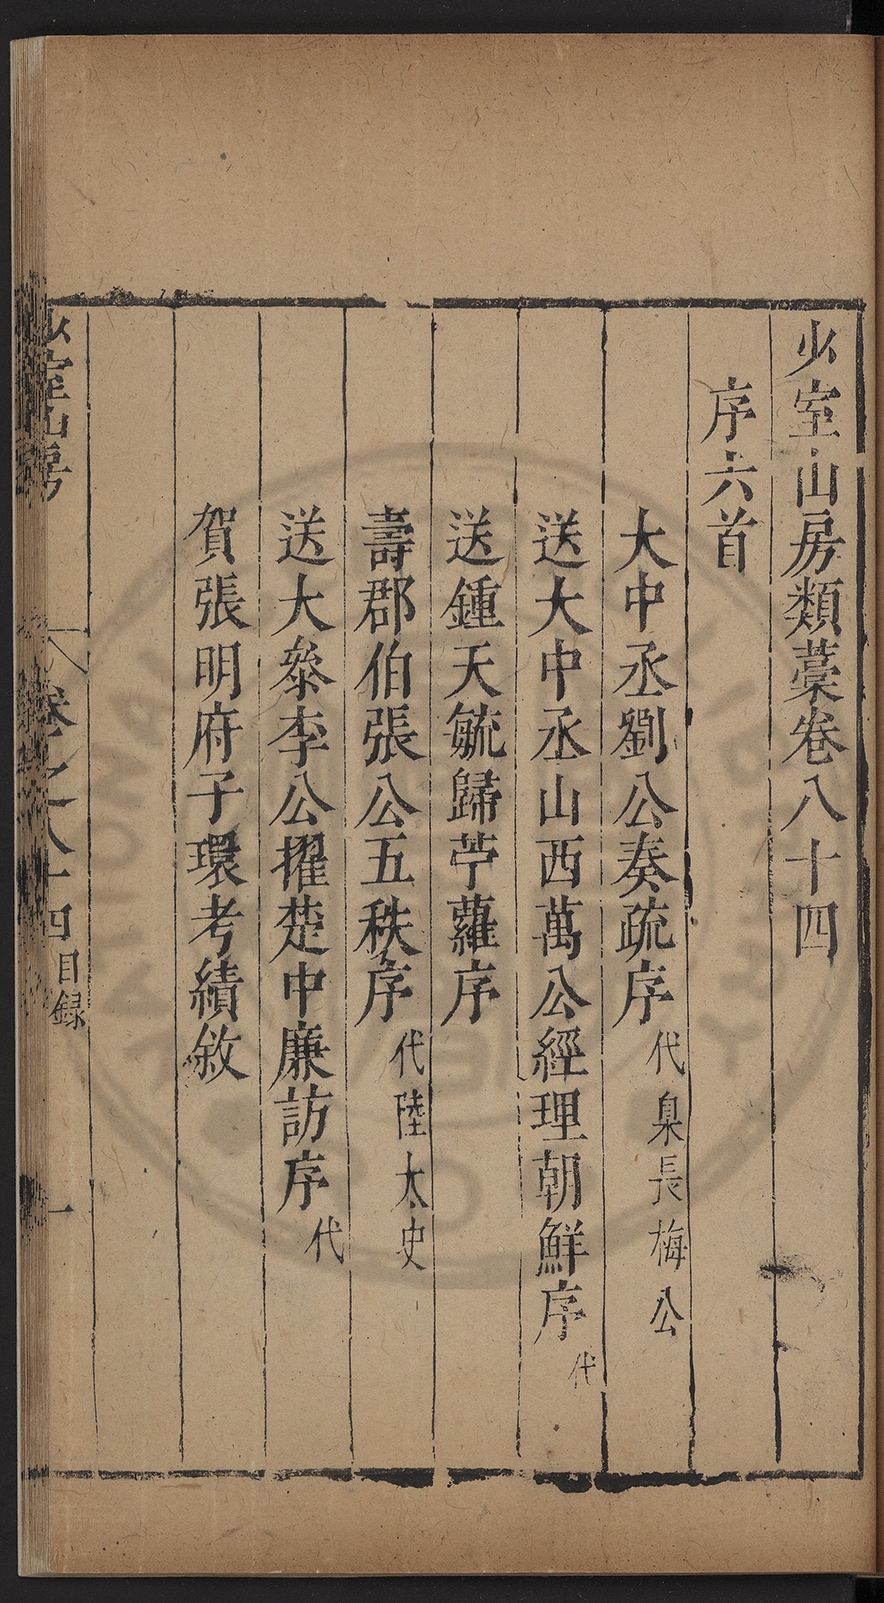 少室山房類藁卷八十四
序六首
大中丞劉公奏疏序 代臬長梅公
送大中丞山西萬公經理朝鮮序 代
送鍾天毓歸苧蘿序
壽郡伯張公五秩序 代陸太史
送大叅李公擢楚中廉訪序 代
賀張明府子環考績敘
少室山房 卷之八十四 目録 一